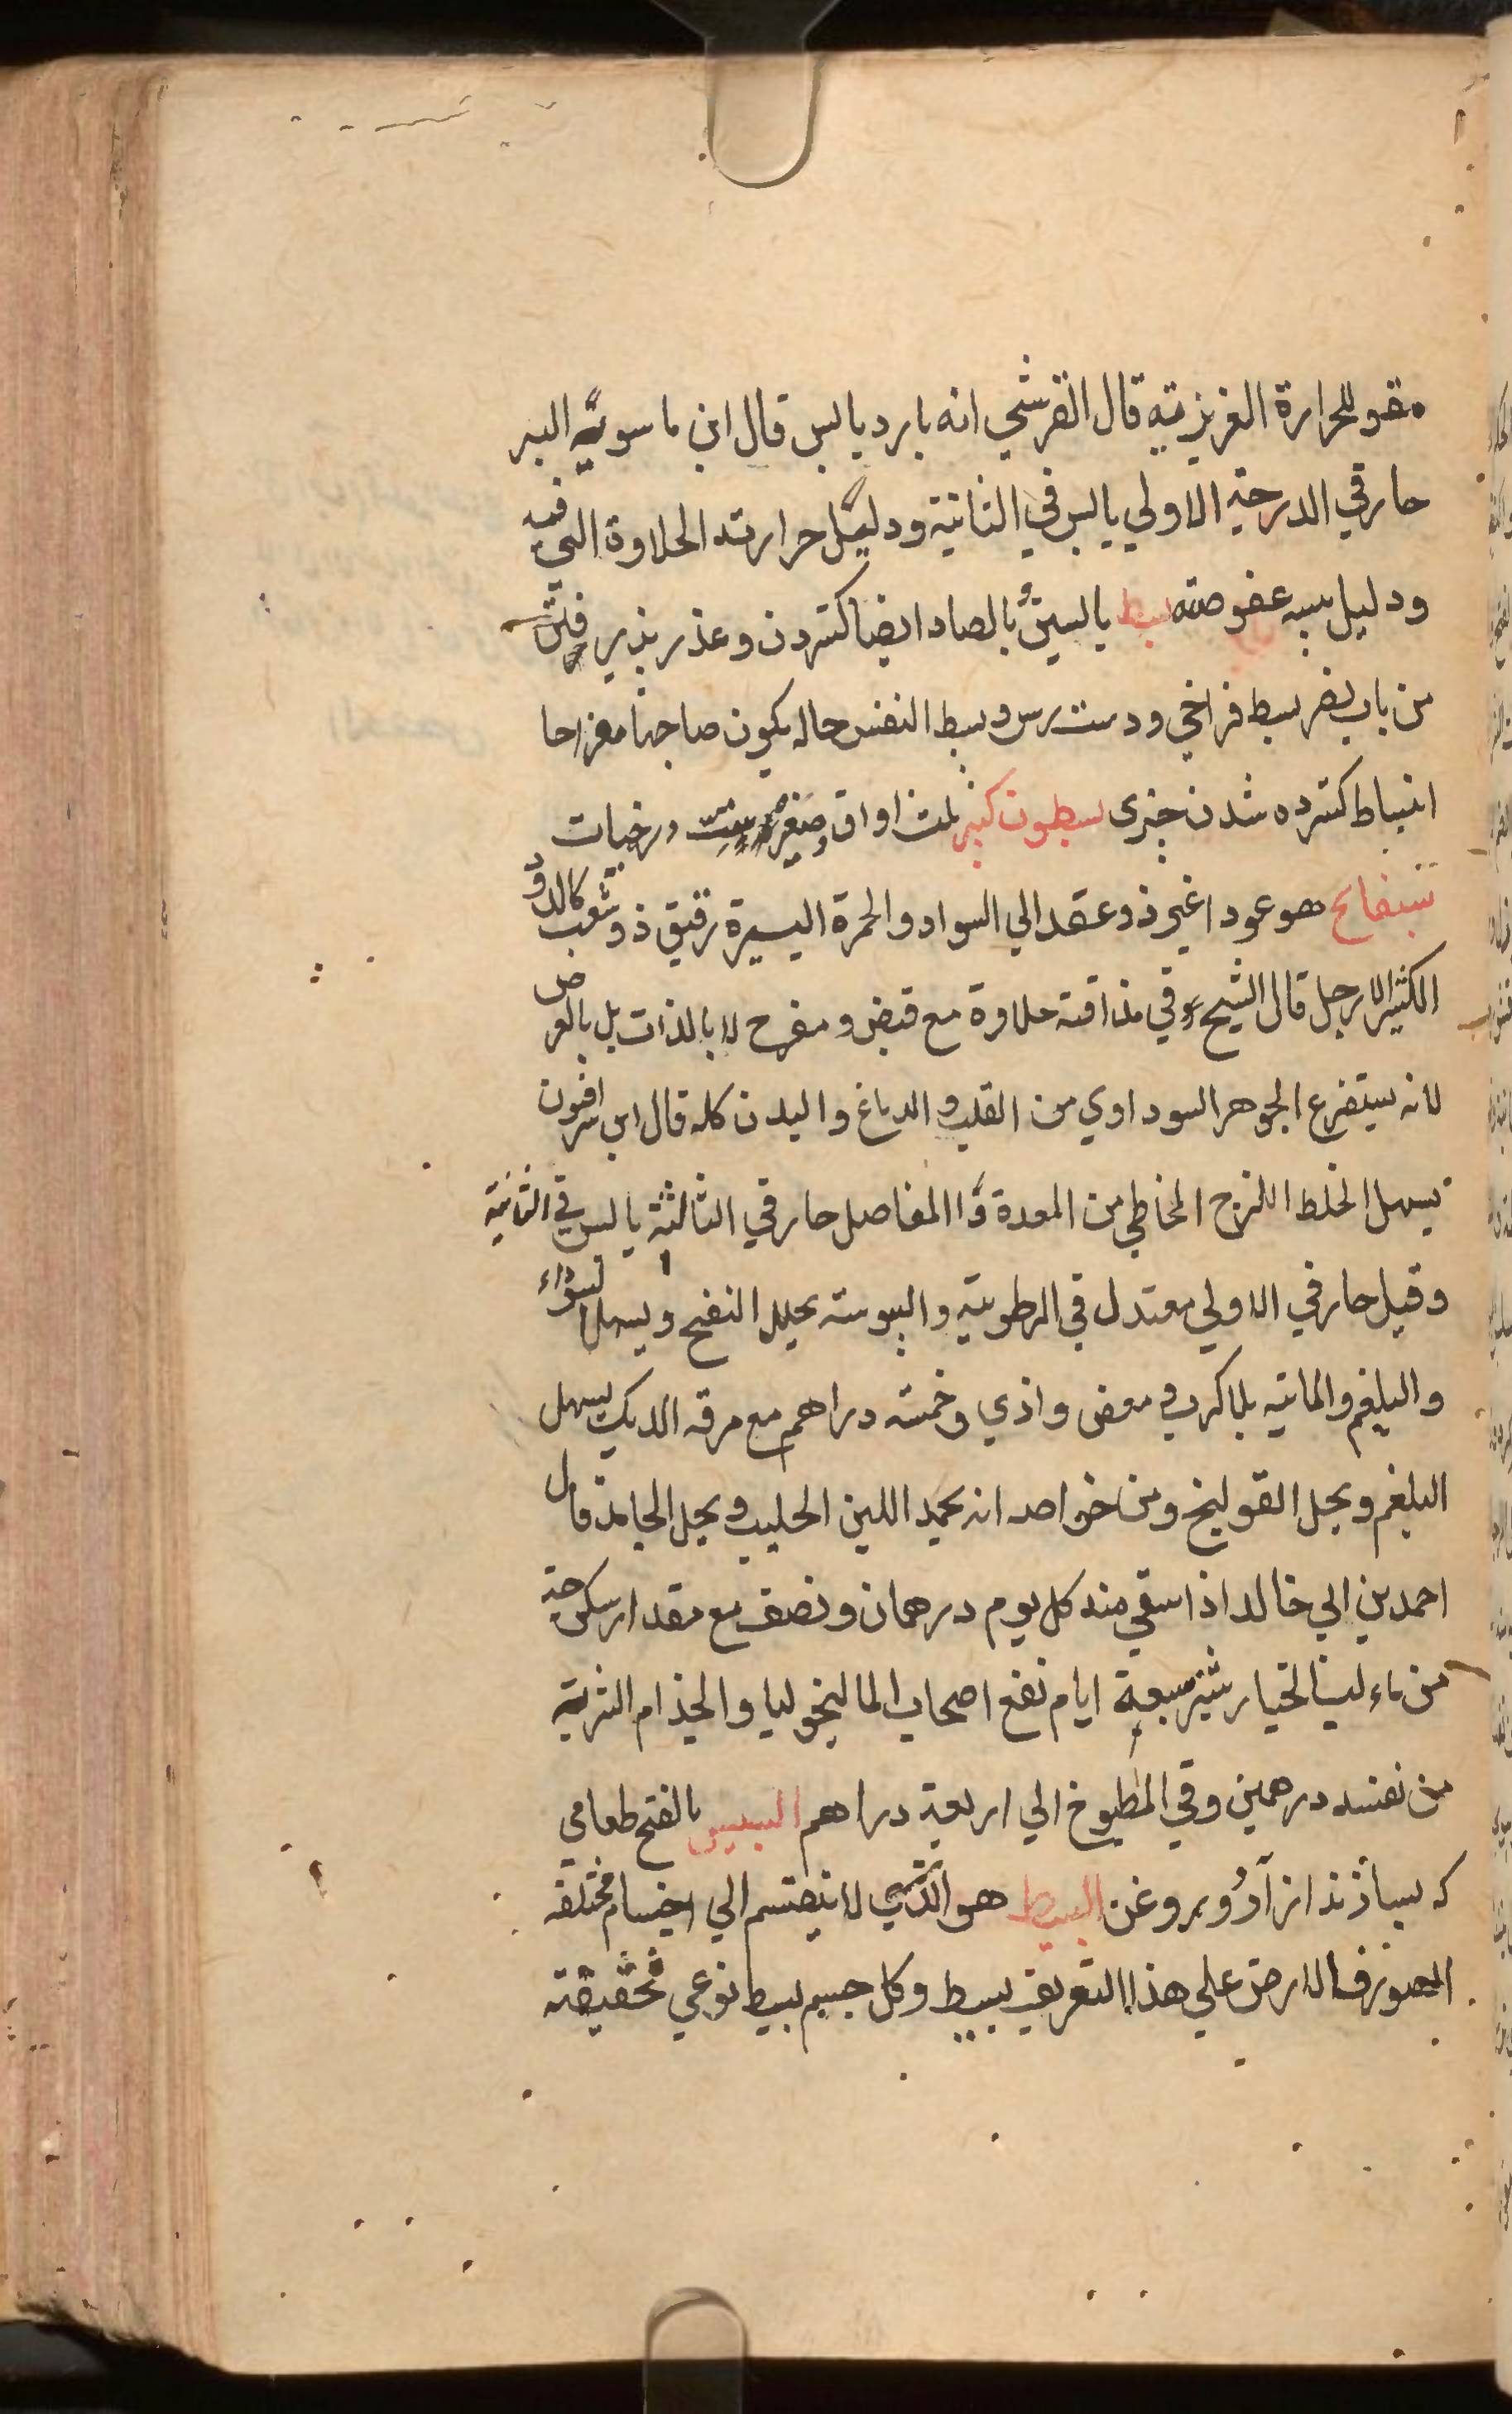 مقو للحرارة الغريزية قال القرشي انه بارد يابس قال ابن ماسويه البسر
حار في الدرجة الاولي يابس في الثانية ودليل حرارته الحلاوة التي فيه
ودليل يبسه عفوصته بسط بالسين بالصاد ايضا كستردن وعذر پذيرفتن
من باب نصر بسط فراخي ودست رس وبسط النفس حاله يكون صاحبها مفراحا
انبساط كسترده شدن چيزى بسطون كبير ثلث اواق وصغير ست درخيات
بسفايج هو عود اغبر ذو عقد الي السواد والحمرة اليسيرة رقيق ذو شعب كالدود
الكثير الارجل قال الشيخ وفي مذاقته حلاوة مع قبض ومفرح لا بالذات بل بالعرض
لانه يستفرغ الجوهر السوداوي من القلب والدماغ والبدن كله قال ابن سرافيون
يسهل الخلط اللزج المخاطي من المعدة والمفاصل حار في الثالثة يابس في الثانية
وقيل حار في الاولي معتدل في الرطوبة واليبوسة يحلل النفخ ويسهل السوداء
والبلغم والمائية بلا كرب ومغص واذي وخمسة دراهم مع مرقه الديك يسهل
البلغم ويحل القولنج ومن خواصه انه يجمد اللبن الحليب ويحل الجامد قال
احمد بن ابي خالد اذا سقي منه كل يوم درهمان ونصف مع مقدار سكرجة
من ماء لب الخيار شنبر سبعة ايام نفع اصحاب الماليخوليا والجذام الشربة
من نفسه درهمين وفي المطبوخ الي اربعة دراهم البسيس بالفتح طعامي
كه بسازند از آرد وبروغن البسيط هو الذي لا ينقسم الي اجسام مختلفة
الصور فالارض علي هذا التعريف بسيط وكل جسم بسيط نوعي فحقيقته